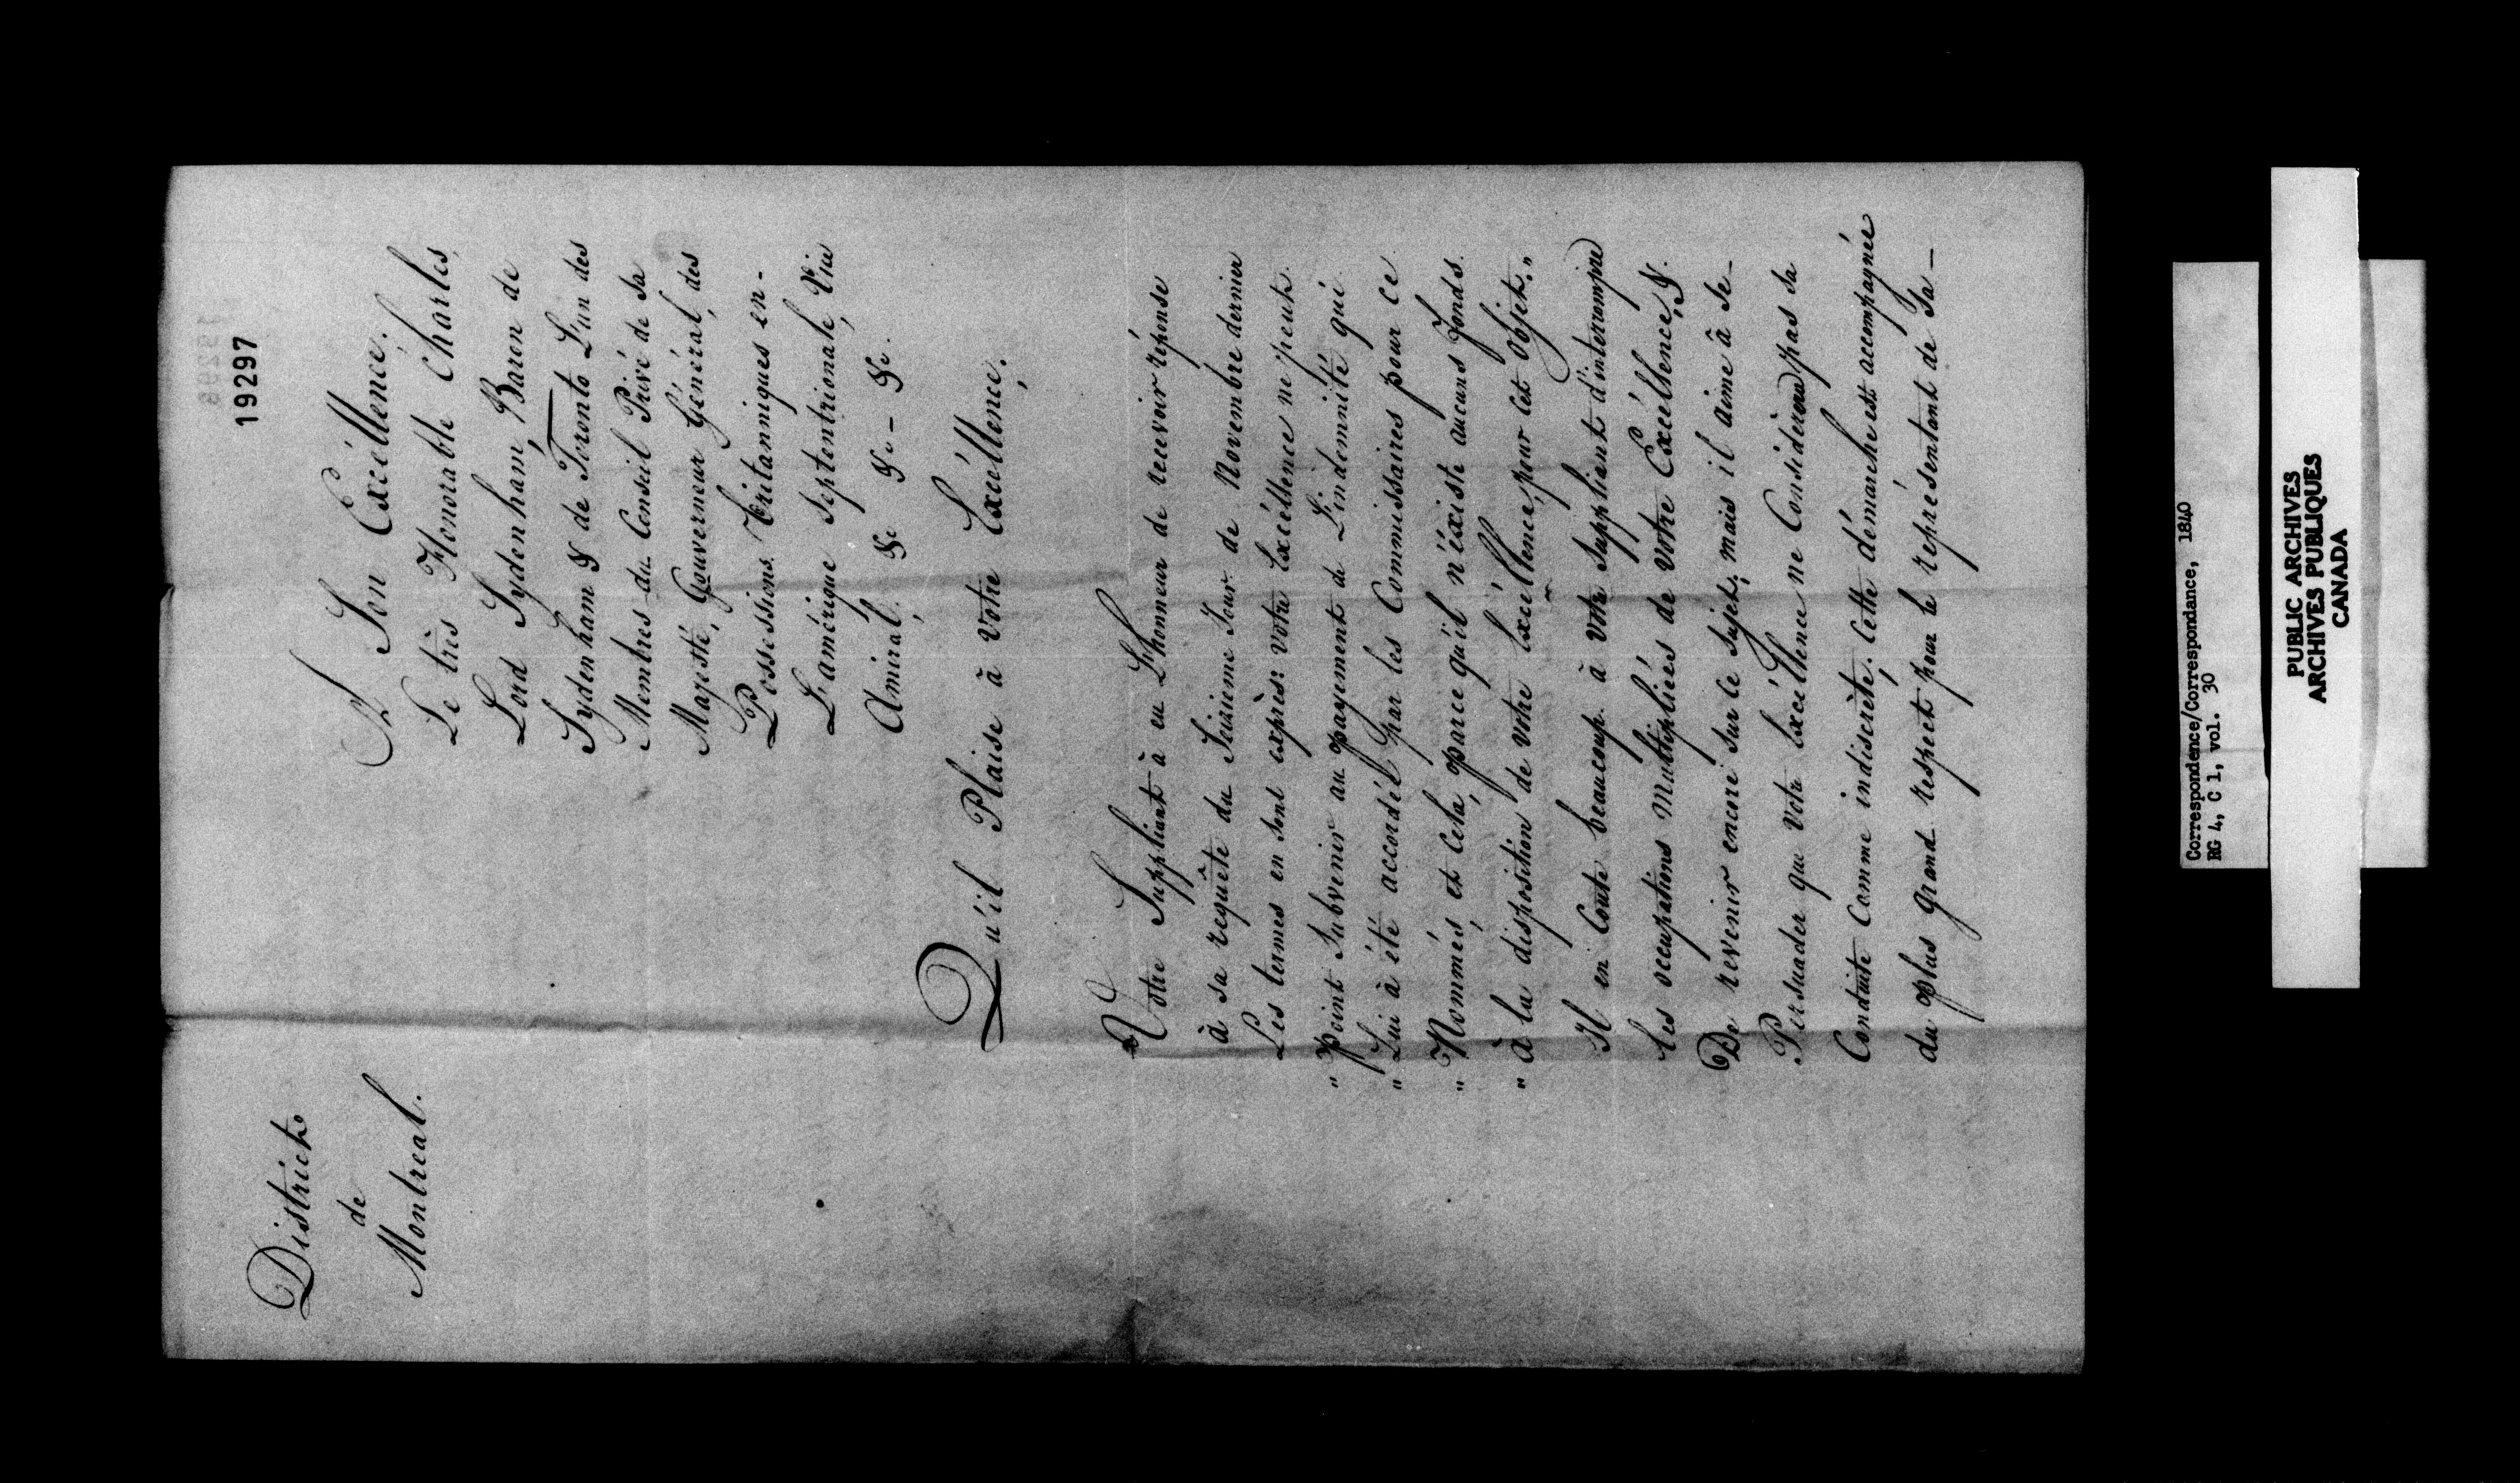 19297
District
de
Montreal.
A Son Excéllence,
Le très Honorable Charles,
Lord Sydenham, Baron de
Sydenham & de Toronto L'un des
Membres du Conseil Privé de Sa
Majesté, Gouverneur Général, des
Possessions Britanniques en-
L'amérique Septentrionale, Vice
Amiral, &c &c - &c.
Qu'il Plaise à Votre Excéllence,
Votre Suppliant à eu L'honneur de recevoir réponse
à sa requête du Seisieme Jour de Novembre dernier
Les termes en sont exprès: Votre Excéllence ne peut
" Point Subvenir au payement de L'indemnité qui
" Lui à été accordée par les Commissaires pour ce
" Nommés, et Cela, parce qu'il n'éxiste aucuns fonds
" à la disposition de Votre Excéllence, pour Cet Objet."
Il en Coute beaucoup à Votre Suppliant d'interrompre
les occupations Multipliées de Votre Excéllence, &
De revenir encore Sur le Sujet, mais il aime à Se-
Persuader que Votre Excéllence ne Considèrera pas Sa
Conduite Comme indiscrète. Cette démarche est accompagnée
du plus grand respect pour le représentant de Sa-
Correspondence/Correspondance, 1840
RG 4, C 1, vol. 30
PUBLIC ARCHIVES
ARCHIVES PUBLIQUES
CANADA